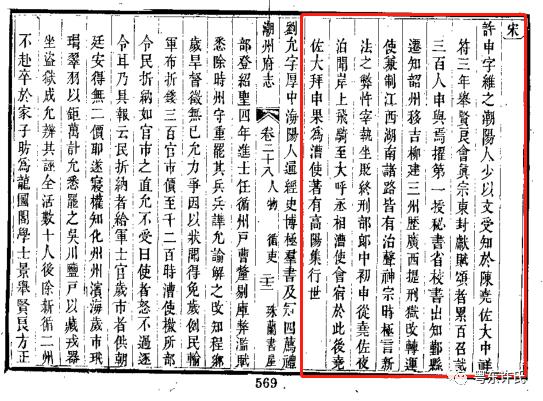 宋
許申字維之潮陽人少以文受知於陳堯佐大中祥
符三年舉賢良會眞宗東封獻賦頌者累百召試
三百人申與焉擢第一授秘書省校書出知鄞縣
遷知韶州移吉柳建三州歷廣西提刑改轉運
使兼制江西湖南諸路皆有治聲神宗時極言新
法之弊忤宰執坐貶終刑部郎中初申從堯佐夜
泊聞岸上飛騎至大呼丞相漕使會宿於此後堯
佐大拜申果爲漕使著有高陽集行世
劉允字厚中海陽人通經史博極羣書及冠四薦禮
潮州府志 卷二十八 人物 循吏 珠蘭書屋
部登紹聖四年進士任循州戶曹釐剔庫弊濫賦
悉除時州守重罷其兵兵譁允諭解之改知程鄉
歲旱督徵無已允力爭因以狀聞得免歲例民輸
軍布折錢三百官市價至千二百時漕使檄所部
令民折納如官市之直允不受曰使者怒不過逐
令耳乃具報云民折納者給軍士官歲市者供朝
廷安得無二價耶遂寢權知化州州濱海歲市玳
瑁翠羽以鉅萬計允悉罷之吳川鹽戶以藏戎器
坐盜獄成允辨其誣全活數十人後除新循二州
不赴卒於家子昉爲龍圖閣學士景舉賢良方正
569
粤东许氏